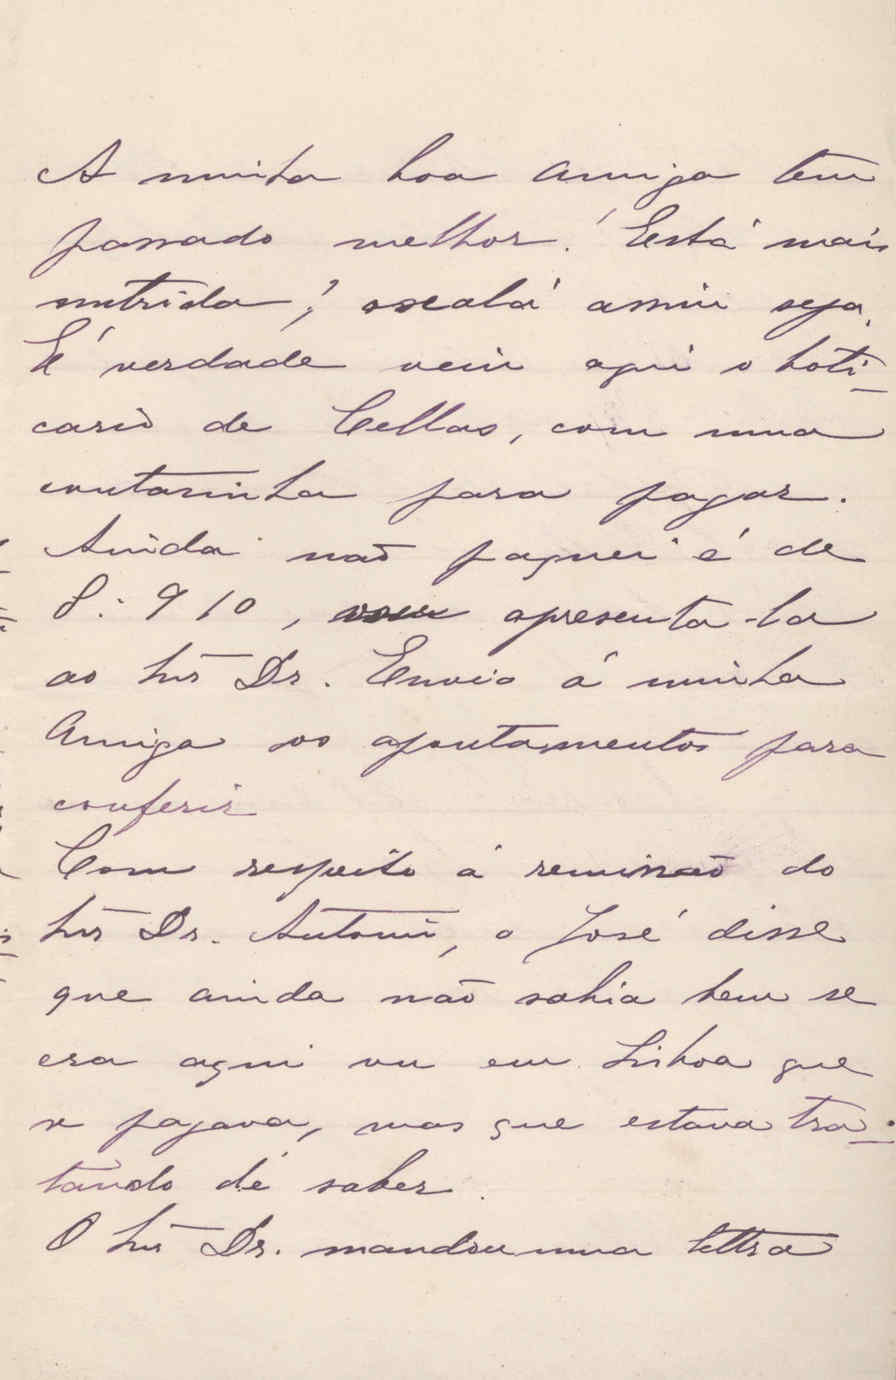 A minha boa Amiga tem
passado melhor! Está mais
nutrida!, oxalá assim seja.
É verdade veiu aqui o boti-
cario de Cellas, com uma
contasinha para pagar.
Ainda não paguei é de
8:910, vou apresenta-la
ao Snr Dr. Envio á minha
Amiga os apontamentos para
conferir
Com respeito á remissão do
Snr Dr. Antonio, o José disse
que ainda não sabia bem se
era aqui ou em Lisboa que
se pagava, mas que estava tra-
tando de saber.
O Snr Dr. mandou uma lettra